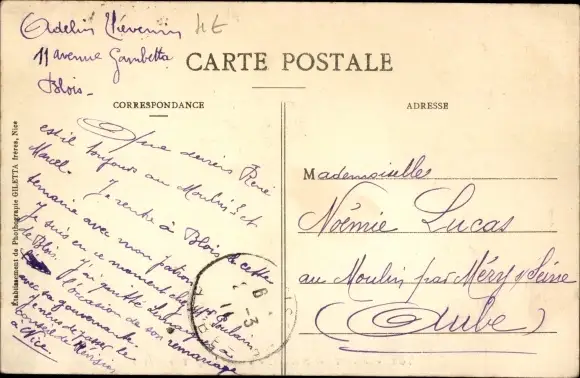 Adelin Thévenin
11 avenue Gambetta
Blois.
CARTE POSTALE
CORRESPONDANCE
ADRESSE
Établissement de Photographie GILETTA frères, Nice
Que devien René
est-il toujours au Moulin? et
Marcel. Je rentre à Blois cette
semaine avec mon patron
Je suis en ce moment chez
de Blois. J'ai quitté
à l'occasion de son remariage
avec sa gouvernante
Je viens de passer le
conseil de révision
à Nice.
Mademoiselle
Noémie Lucas
au Moulin par Méry s/ Seine
(Aube)